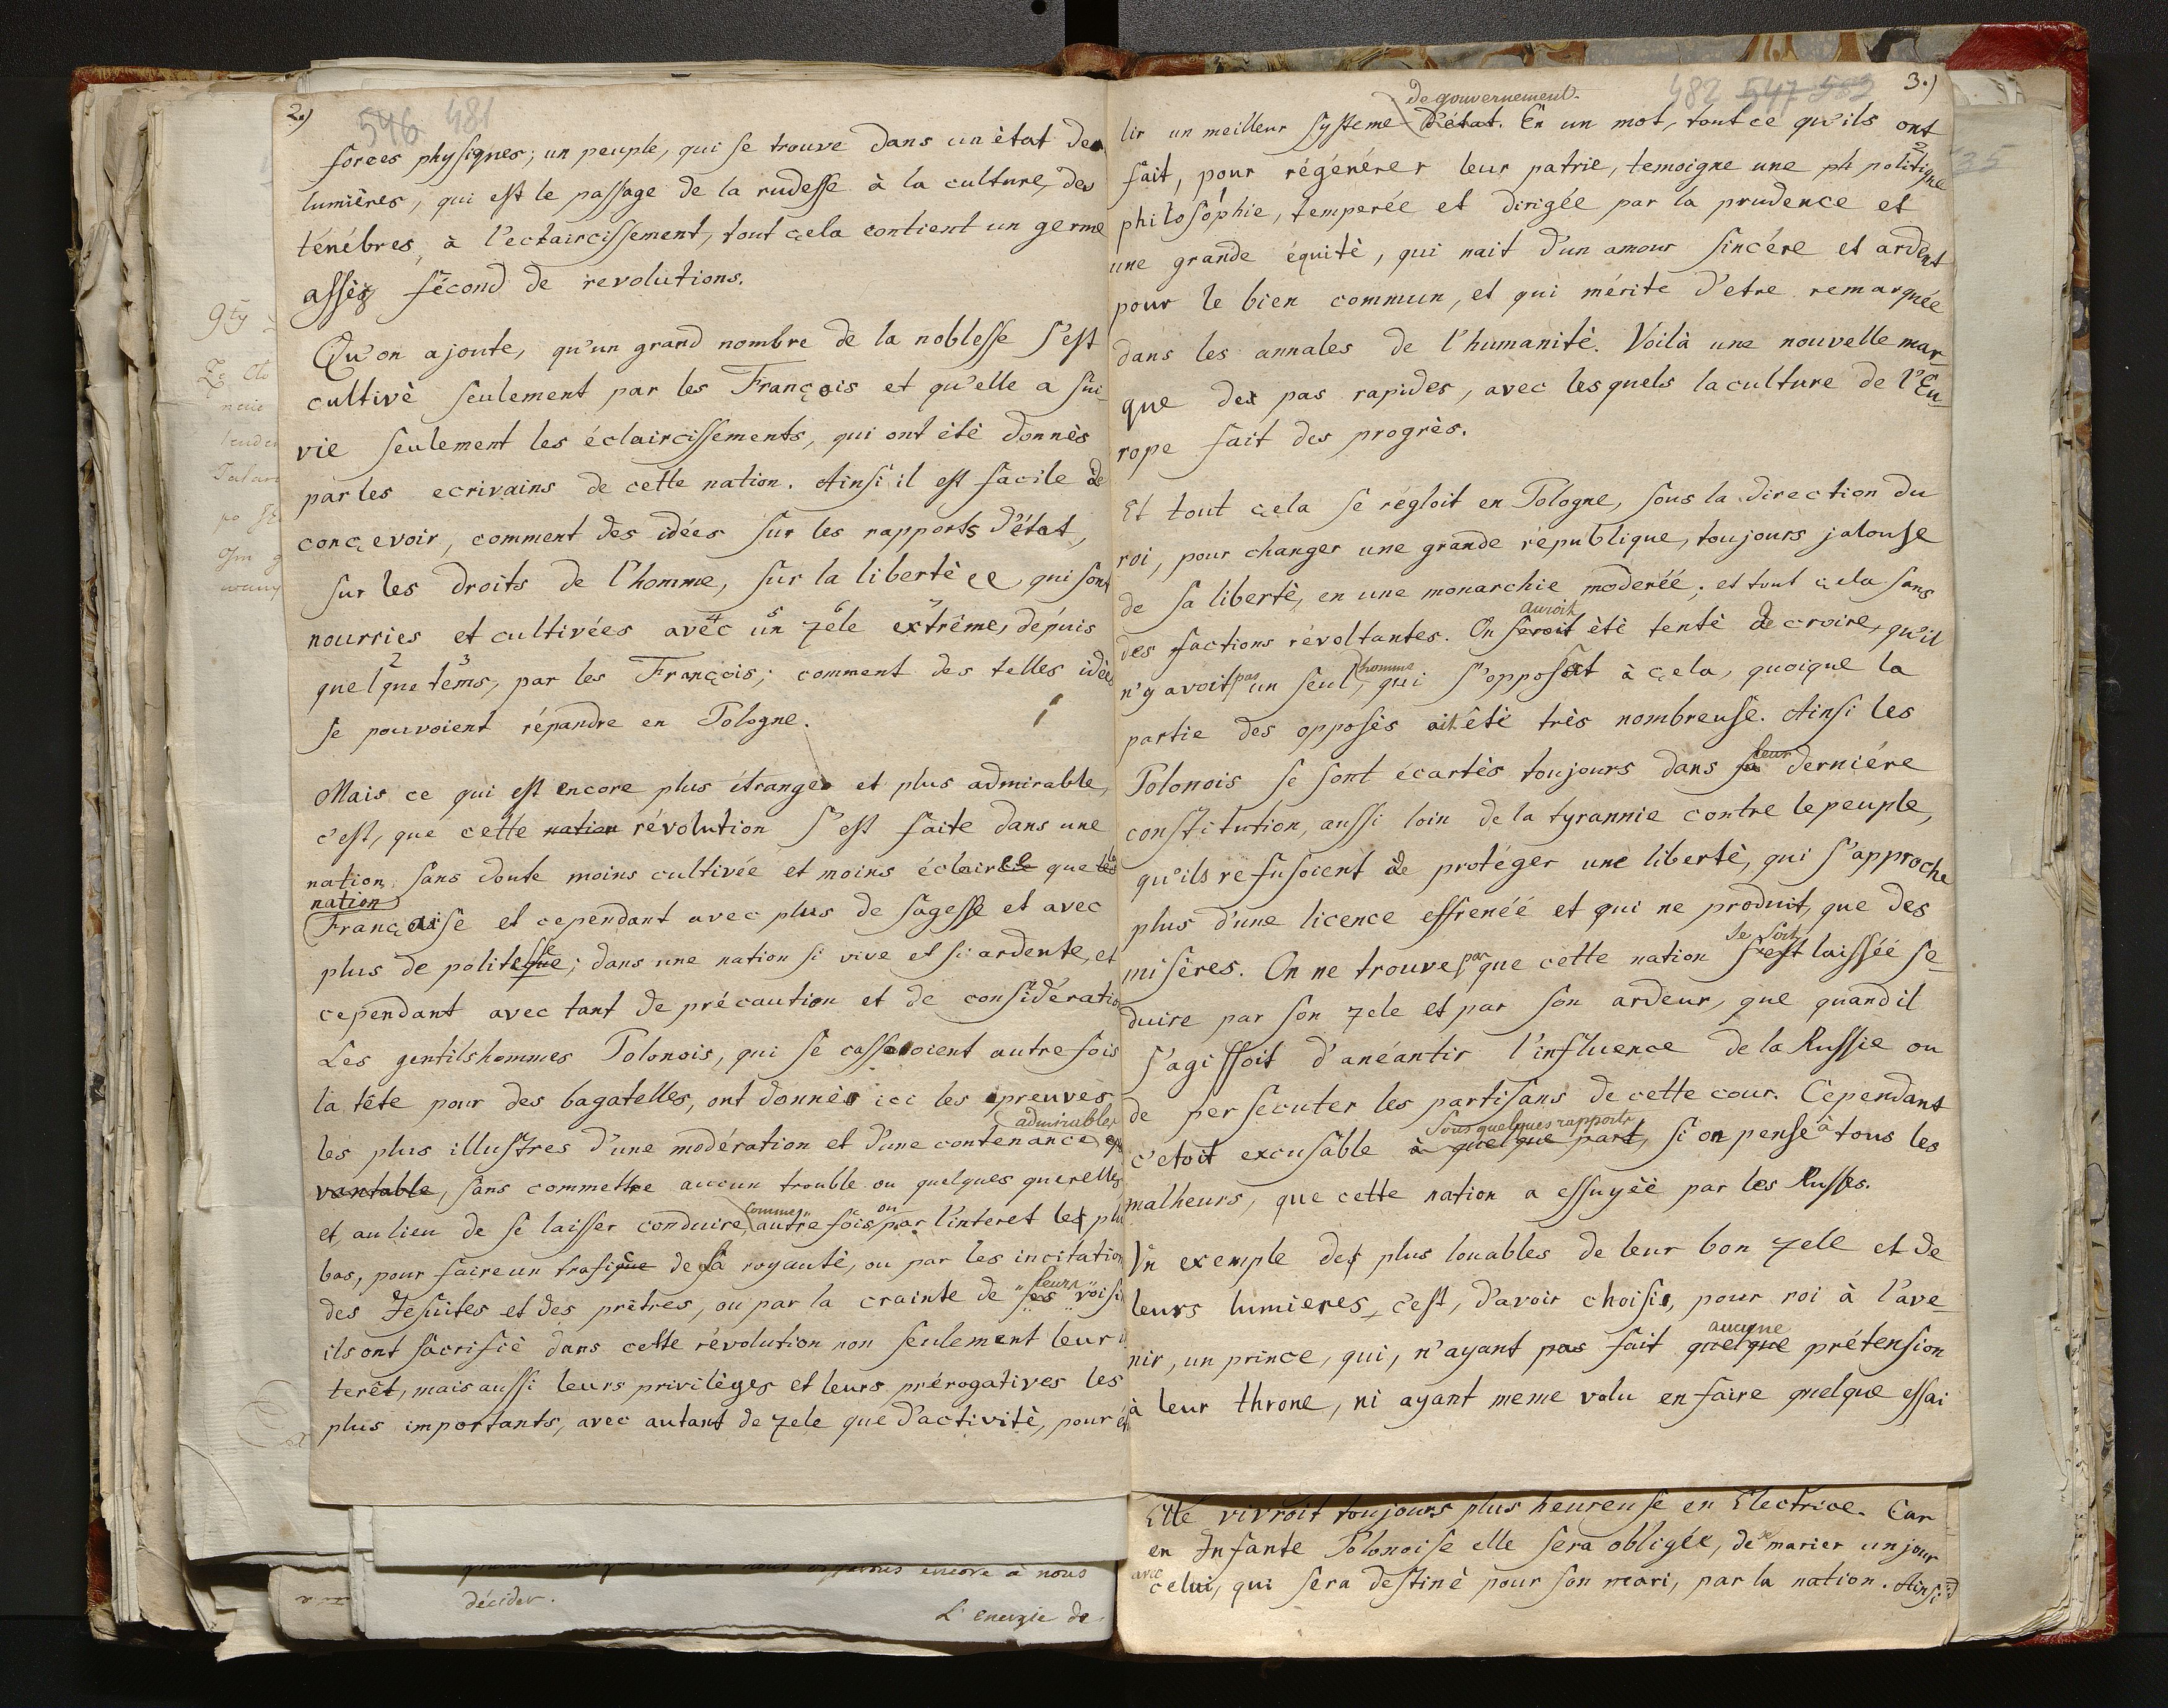 2.)
546 481
forces physiques; un peuple, qui se trouve dans un ètat des
lumières, qui est le passage de la rudesse à la culture, des
ténébres, à l'eclaircissement, tout çela contient un germe
assès fécond de revolutions.
Qu'on ajoute, qu'un grand nombre de la noblesse s'est
cultivè seulement par les François et qu'elle a sui-
vie seulement les éclaircissements, qui ont étè donnès
par les ecrivains de cette nation. Ainsi il est facile à de
conçevoir, comment des idées sur les rapports d'état,
sur les droits de l'homme, sur la libertè qui sont
4 5 6 7
nourries et cultivées avec un zéle extrême, dépuis
2 3
quelque tems, par les François; comment des telles idées
se pouvoient répandre en Pologne.
Mais ce qui est encore plus étrange et plus admirable,
c'est, que cette nation révolution s'est faite dans une
nation, sans doute moins cultivée et moins éclairée que la
nation
Française et cependant avec plus de sagesse et avec
plus de politesse; dans une nation si vive et si ardente, et
cependant avec tant de précaution et de consideratio
Les gentilshommes Polonois, qui se cassoient autre fois
la tête pour des bagatelles, ont donnès ici les epreuves
admirables
les plus illustres d'une modération et d'une contenance
vantable, sans commettre aucun trouble ou quelques querelles
comme ou
et, au lieu de se laisser conduire, autre fois par l'interet le plu
bas, pour faire un trafic de la royautè, ou par les incitation
leurs
des Jesuites et des prêtres, ou par la crainte de ses voisi
ils ont sacrifiè dans cette révolution non seulement leur
terêt, mais aussi leurs privilèges et leurs prérogatives les
plus importants, avec autant de zele que d'activitè, pour
3.)
482 547 583
de gouvernement.
lir un meilleur systeme d'état. En un mot, tout ce qu'ils ont
2
fait, pour régénérer leur patrie, temoigne une ph politique
1
philosophie, temperée et dirigée par la prudence et
une grande équitè, qui nait d'un amour sincére et ardent
pour le bien commun, et qui mérite d'etre remarquée
dans les annales de l'humanitè. Voilà une nouvelle mar-
que des pas rapides, avec lesquels la culture de l'Eu-
rope fait des progrès.
Et tout çela se régloit en Pologne, sous la direction du
roi, pour changer une grande république, toujours jalouse
de sa libertè, en une monarchie moderée; et tout çela sans
auroit
des factions révoltantes. On seroit étè tentè de croire, qu'il
pas homme
n'y avoit un seul, qui s'opposât à çela, quoique la
partie des opposès ait étè très nombreuse. Ainsi les
leur
Polonois se sont écartès toujours dans sa derniére
constitution, aussi loin de la tyrannie contre le peuple,
qu'ils refusoient de protéger une libertè, qui s'approche
plus d'une licence effrenéé et qui ne produit, que des
pas se soit
misères. On ne trouve, que cette nation s'est laissée se-
duire par son zele et par son ardeur, que quand il
s'agissoit d'anéantir l'influence de la Russie ou
de persecuter les partisans de cette cour. Cependant
sous quelques rapports
c'etoit excusable à quelque part, si on pense à tous les
malheurs, que cette nation a essuyèè par les Russes.
Un exemple des plus louables de leur bon zele et de
leurs lumieres, c'est, d'avoir choisi, pour roi à l'ave-
aucune
nir, un prince, qui, n'ayant pas fait quelque prétension
à leur throne, ni ayant meme volu en faire quelque essai
Elle vivroit toujours plus heureuse en Electrice. Car
se
en Infante Polonoise elle sera obligée, de marier un jour
avec
celui, qui sera destinè pour son mari, par la nation. Ainsi
encore à nous
décider.
L'energie de